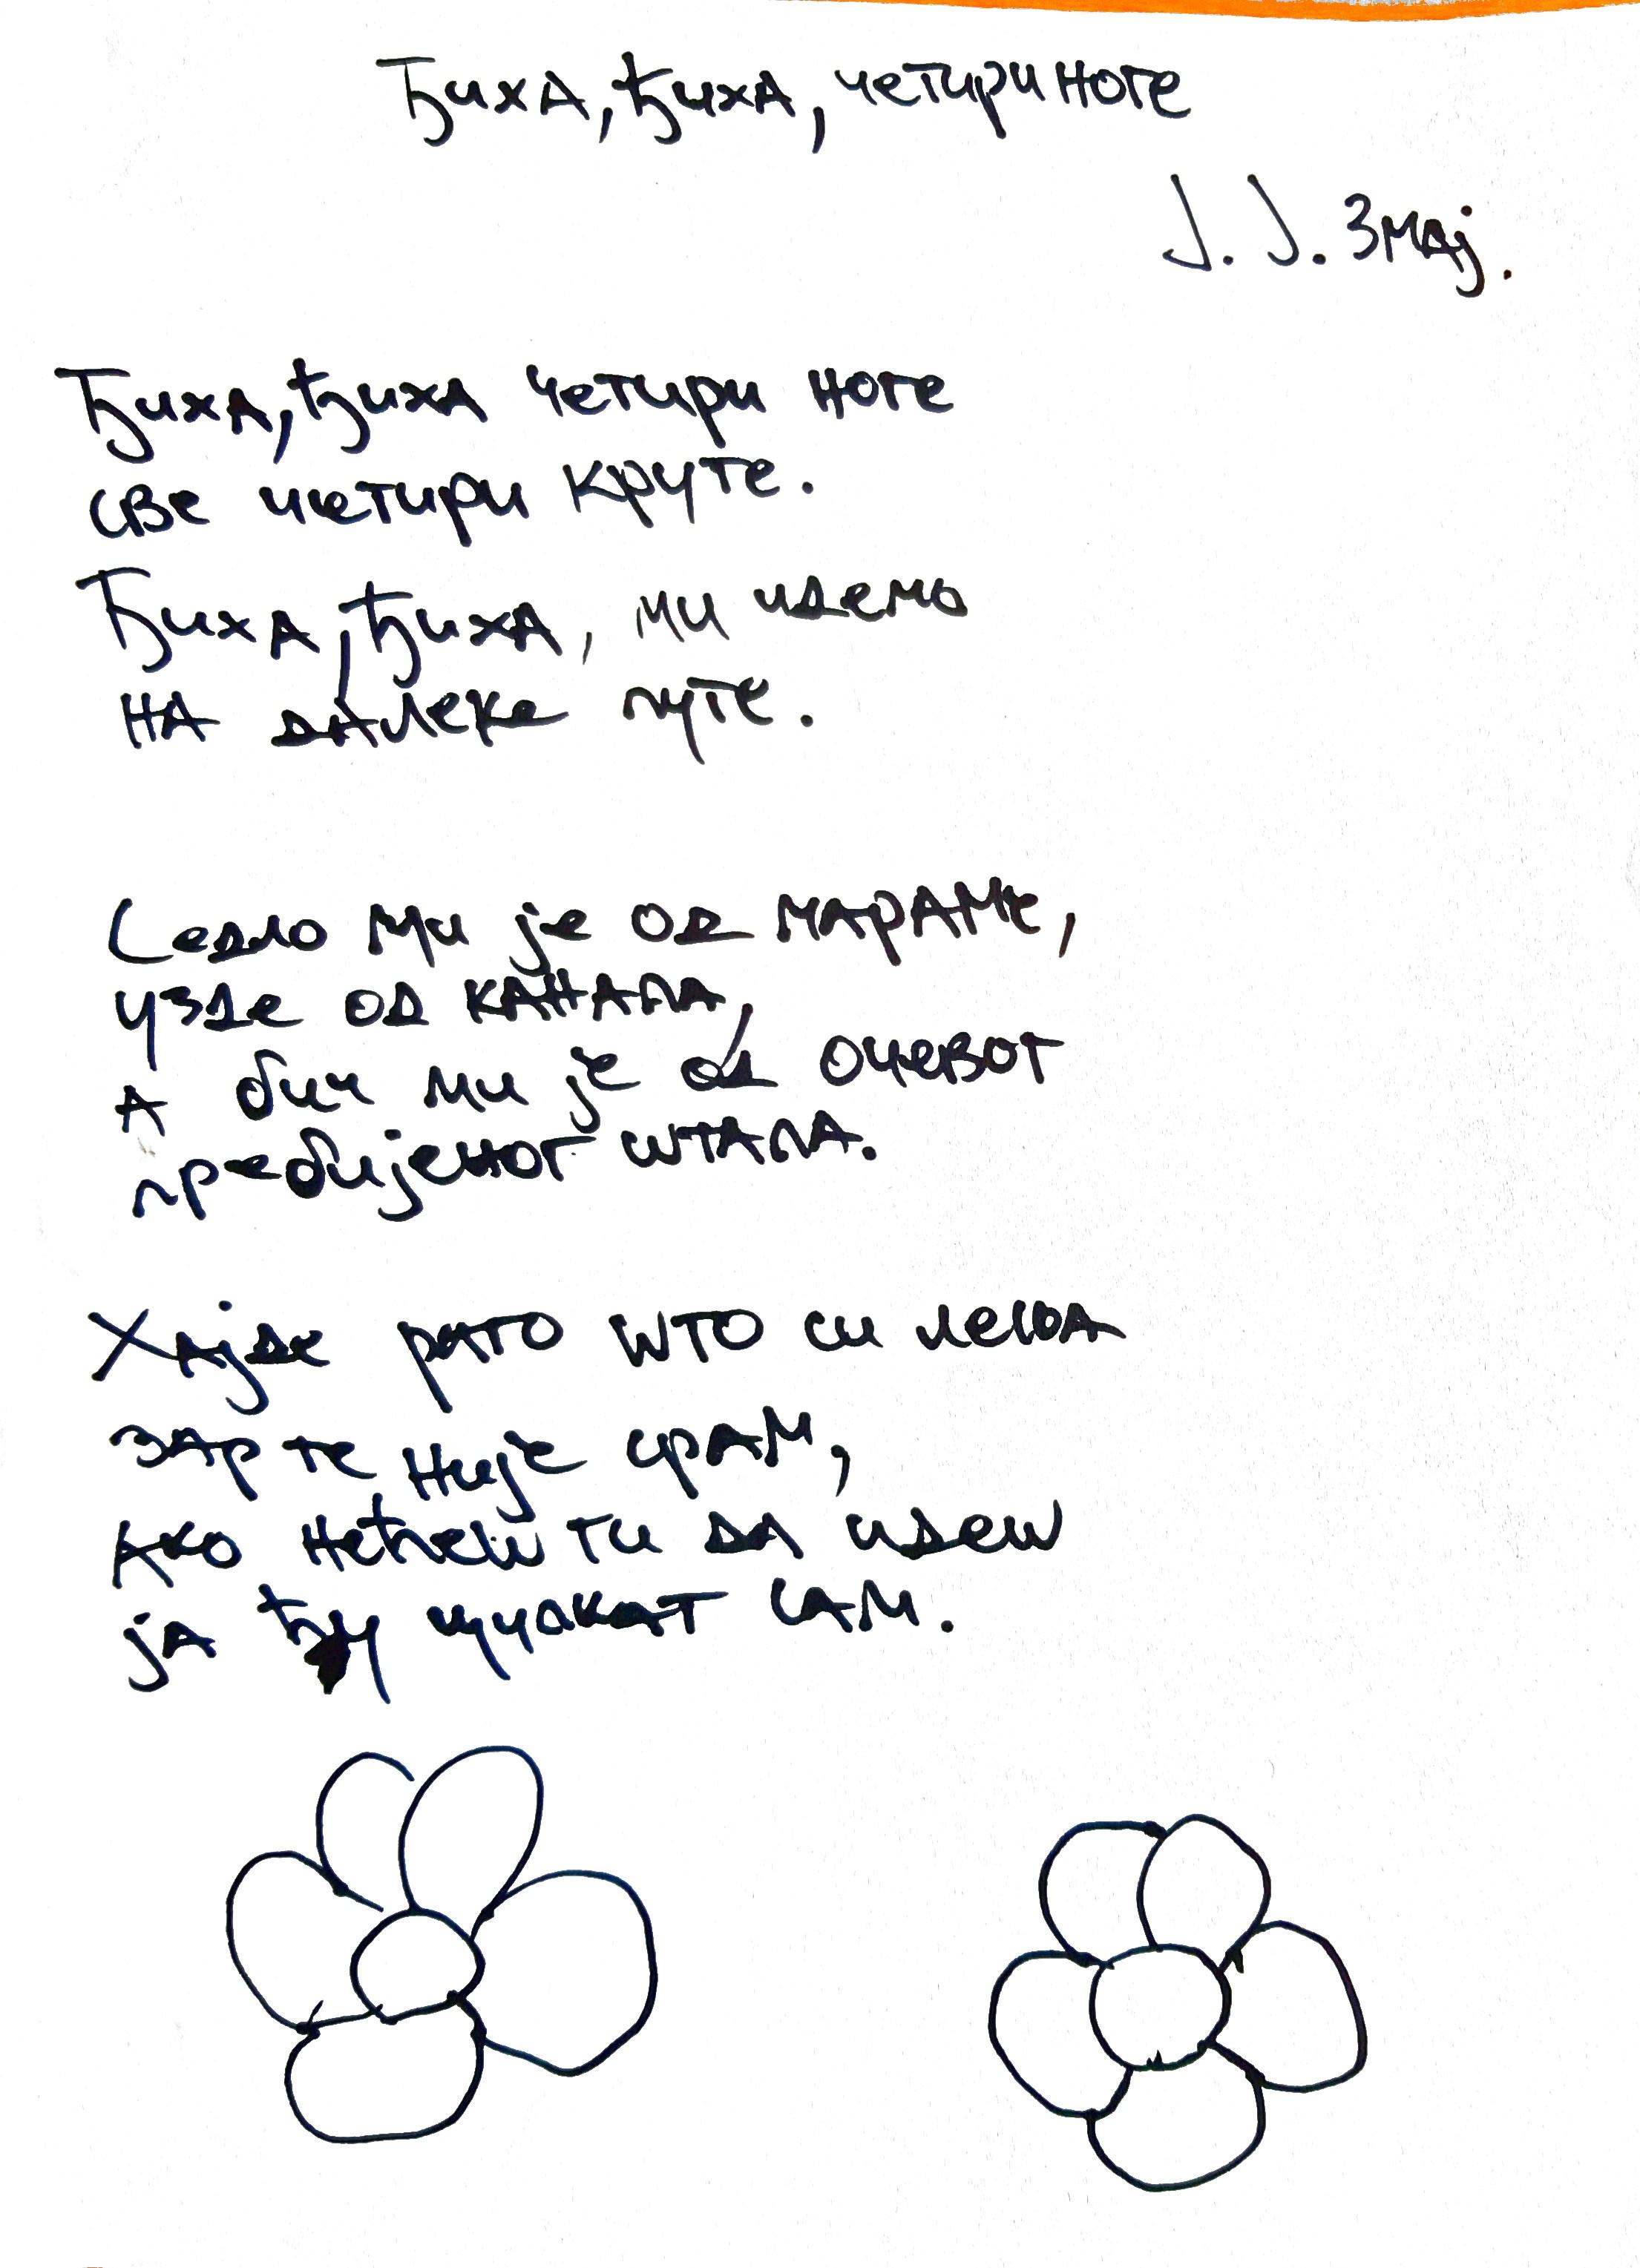 Ђиха, ђиха, четири ноге
Ј. Ј. Змај.
Ђиха, ђиха четири ноге
све четири круте.
Ђиха, ђиха, ми идемо
на далеке путе.
Седло ми је од мараме,
узде од канапа,
а бич ми је од очевог
пребијеног штапа.
Хајде раго што си лења
зар те није срам,
ако нећеш ти да идеш
ја ћу цупкат сам.